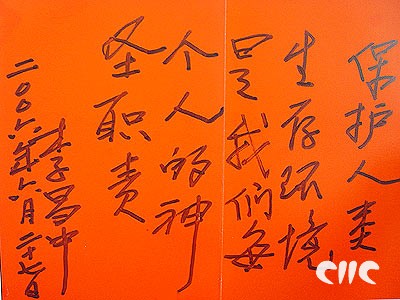 保护人类
生存环境,
是我们每
个人的神
圣职责
李昌中
二〇〇六年六月二十七日
CIIC